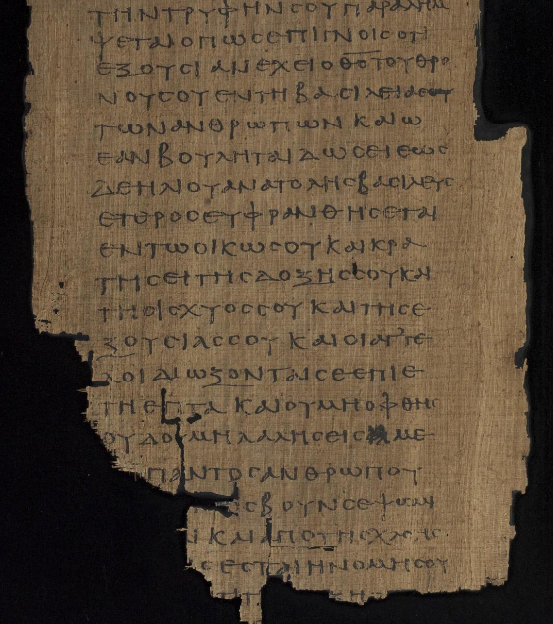 ΤΗΝΤΡΥΦΗΝϹΟΥΠΑΡΑΛΗΜ
ΨΕΤΑΙΟΠΩϹΕΠΙΓΝΟΙϹΟΤΙ
ΕΞΟΥϹΙΑΝΕΧΕΙΟΘ̅Ϲ̅ΤΟΥΘΡΟ
ΝΟΥϹΟΥΕΝΤΗΒΑϹΙΛΕΙΑ
ΤΩΝΑΝΘΡΩΠΩΝΚΑΙΩ
ΕΑΝΒΟΥΛΗΤΑΙΔΩϹΕΙΕΩϹ
ΔΕΗΛΙΟΥΑΝΑΤΟΛΗϹΒΑϹΙΛΕΥϹ
ΕΤΕΡΟϹΕΥΦΡΑΝΘΗϹΕΤΑΙ
ΕΝΤΩΟΙΚΩϹΟΥΚΑΙΚΡΑ
ΤΗϹΕΙΤΗϹΔΟΞΗϹϹΟΥΚΑΙ
ΤΗϹΙϹΧΥΟϹϹΟΥΚΑΙΤΗϹΕ
ΞΟΥϹΙΑϹϹΟΥΚΑΙΟΙΑΓΓΕ
ΛΟΙΔΙΩΞΟΝΤΑΙϹΕΕΠΙΕ
ΤΗΕΠΤΑΚΑΙΟΥΜΗΟΦΘΗϹ
ΟΥΔΟΥΜΗΛΑΛΗϹΕΙϹΜΕ
ΠΑΝΤΟϹΑΝΘΡΩΠΟΥ
ϹΒΟΥΝϹΕΨΩΜΙ
ΚΑΙΑΠΟΤΗϹΧΛΟΗϹ
ϹΕϹΤΑΙΗΝΟΜΗϹΟΥ